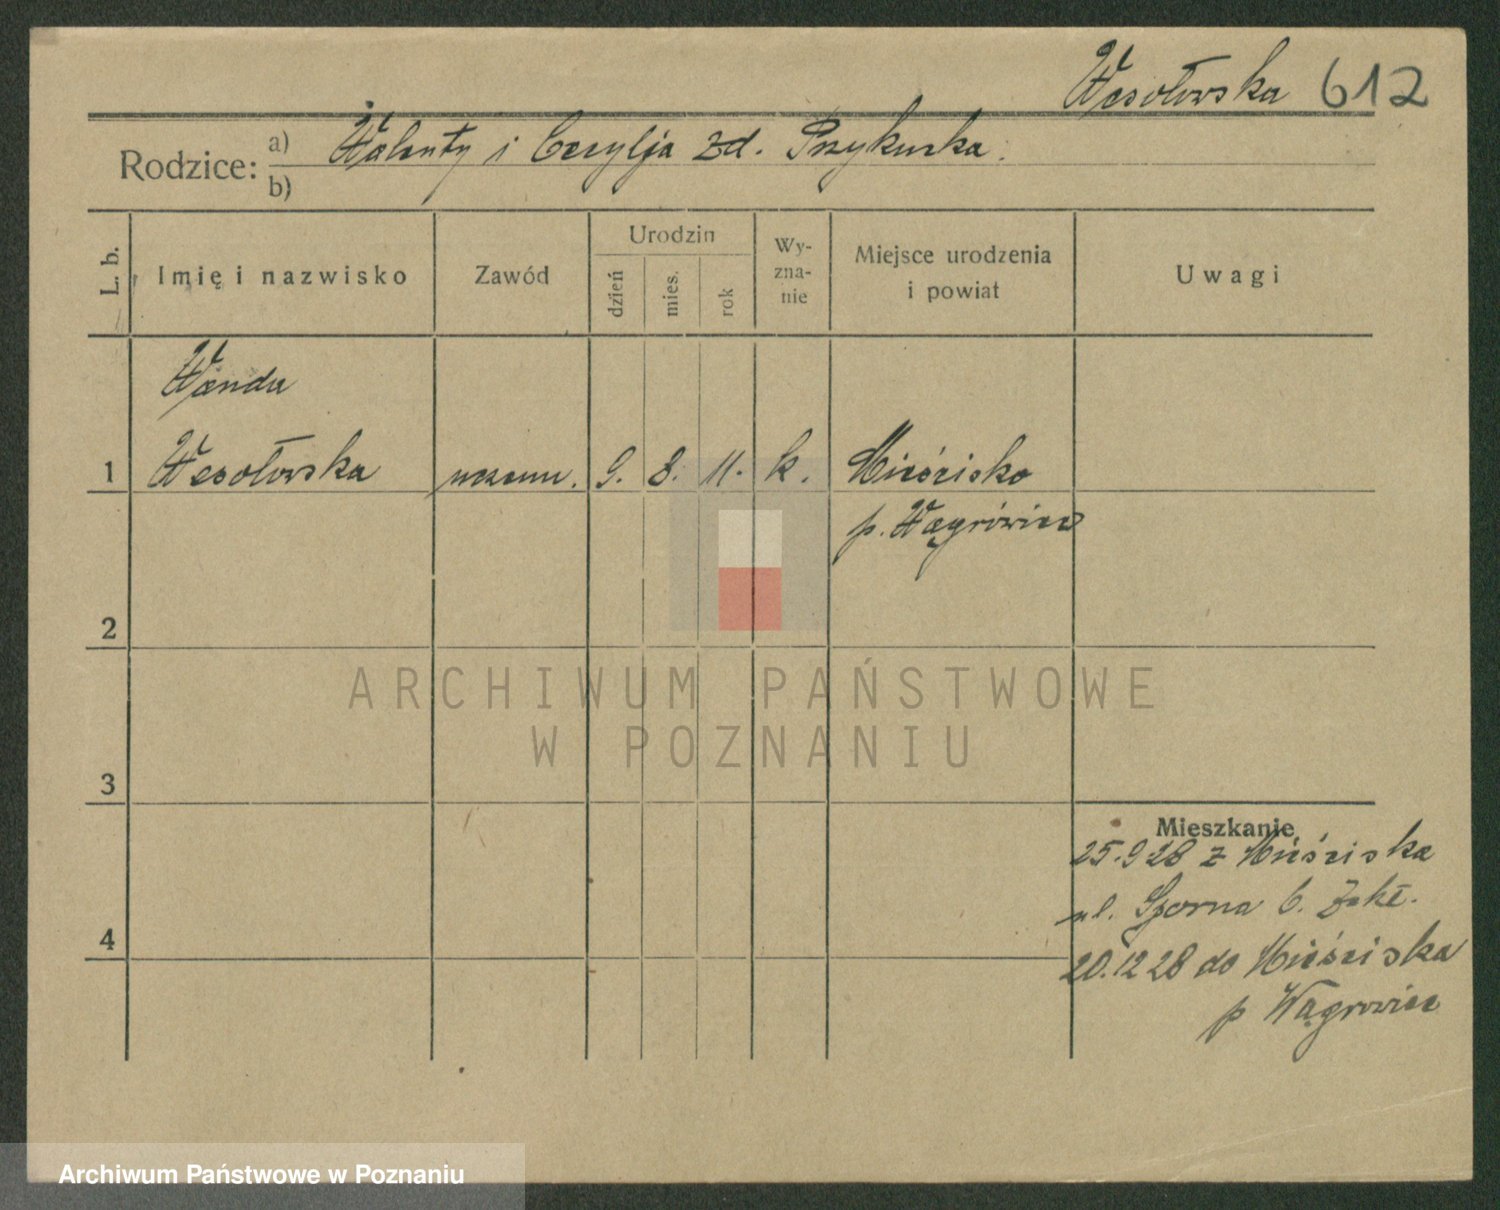 Wesołowska 612
Rodzice: a) Walenty i Cecylja zd. Przykucka.
b)
L. b.
Imię i nazwisko
Zawód
Urodzin
dzień
mies.
rok
Wy-
zna-
nie
Miejsce urodzenia
i powiat
Uwagi
Wanda
1 Wesołowska uczenn. 9. 8. 11. k. Mieścisko
p. Wągrówiec
2
ARCHIWUM PAŃSTWOWE
W POZNANIU
3
Mieszkanie
25.9 28 z Mieściska
ul. 6. Zakł.
4
20.12 28 do Mieściska
p Wągrowiec
Archiwum Państwowe w Poznaniu